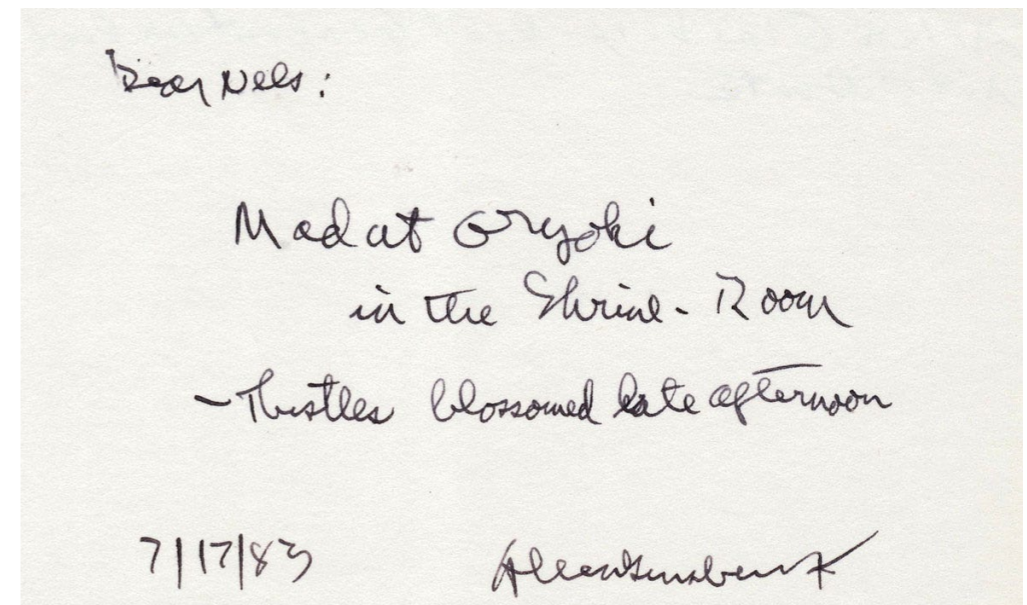 Dear Nels:
Mad at Oryoki
in the Shrine-Room
-Thistles blossomed late afternoon
7/17/83
Allen Ginsberg